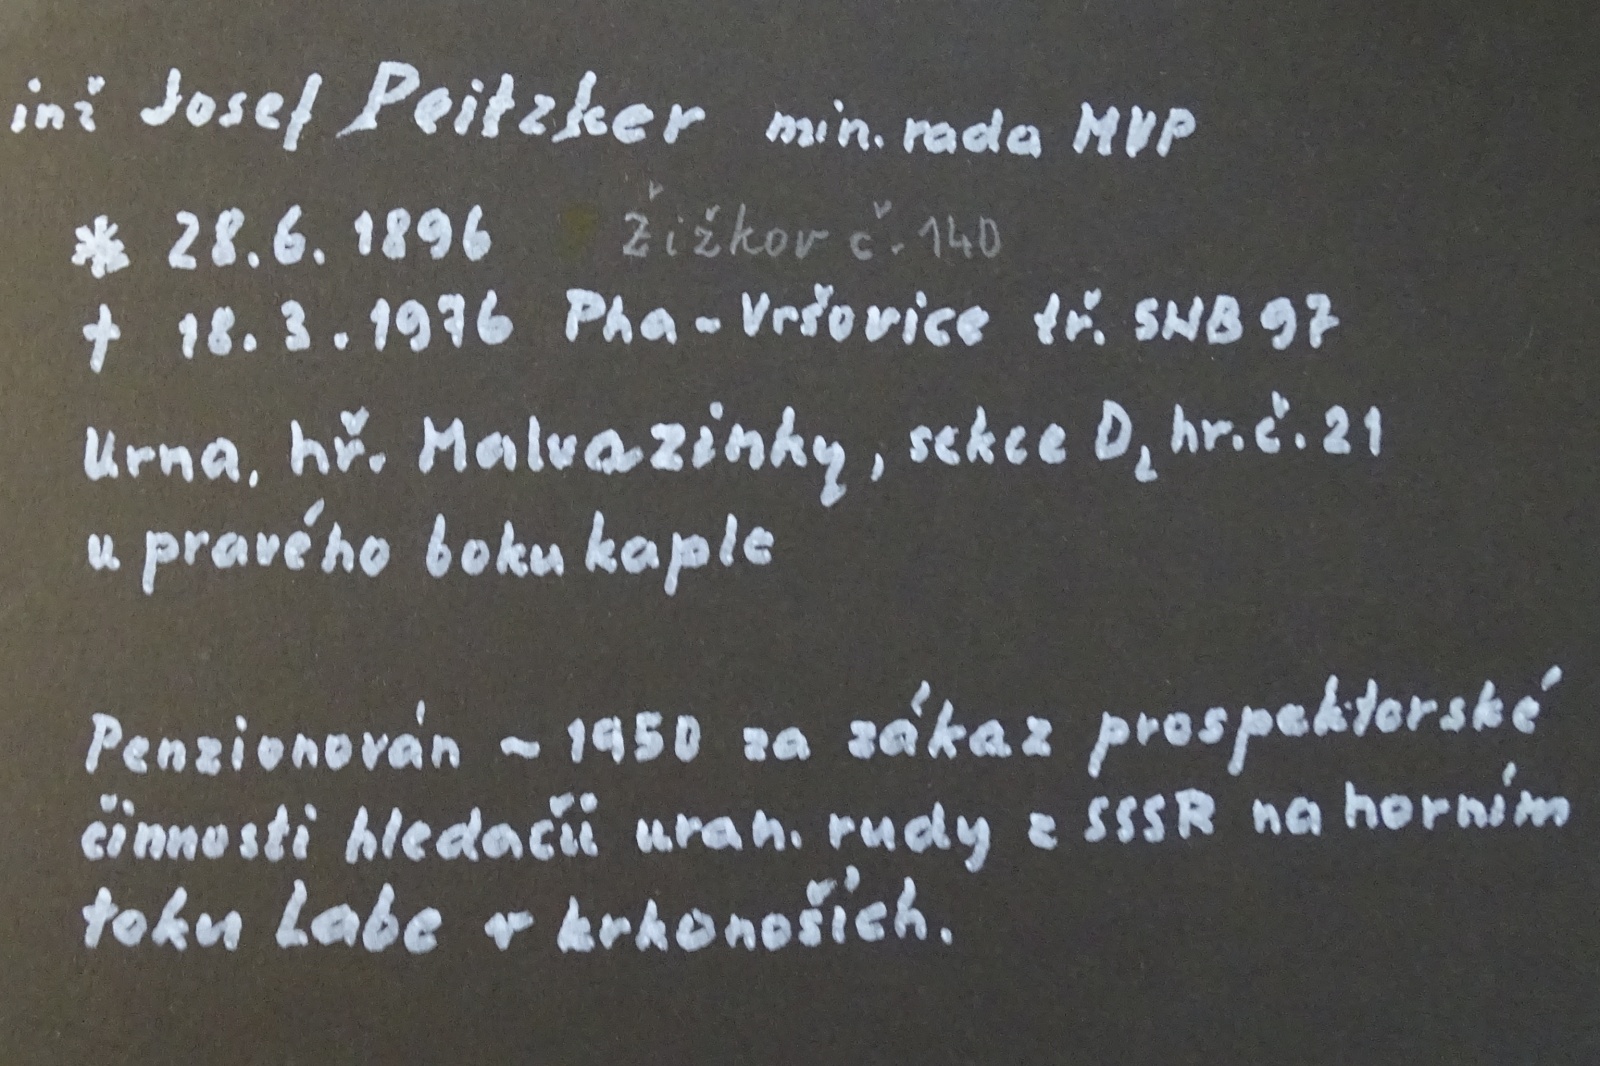 inž Josef Peitzker min. rada MVP
* 28.6.1896 Žižkov č. 140
† 18.3.1976 Pha - Vršovice tř. SNB 97
Urna, hř. Malvazinky, sekce D, hr. č. 21
u pravého boku kaple
Penzionován ~ 1950 za zákaz prospektorské
činnosti hledačů uran. rudy z SSSR na horním
toku Labe v krkonoších.